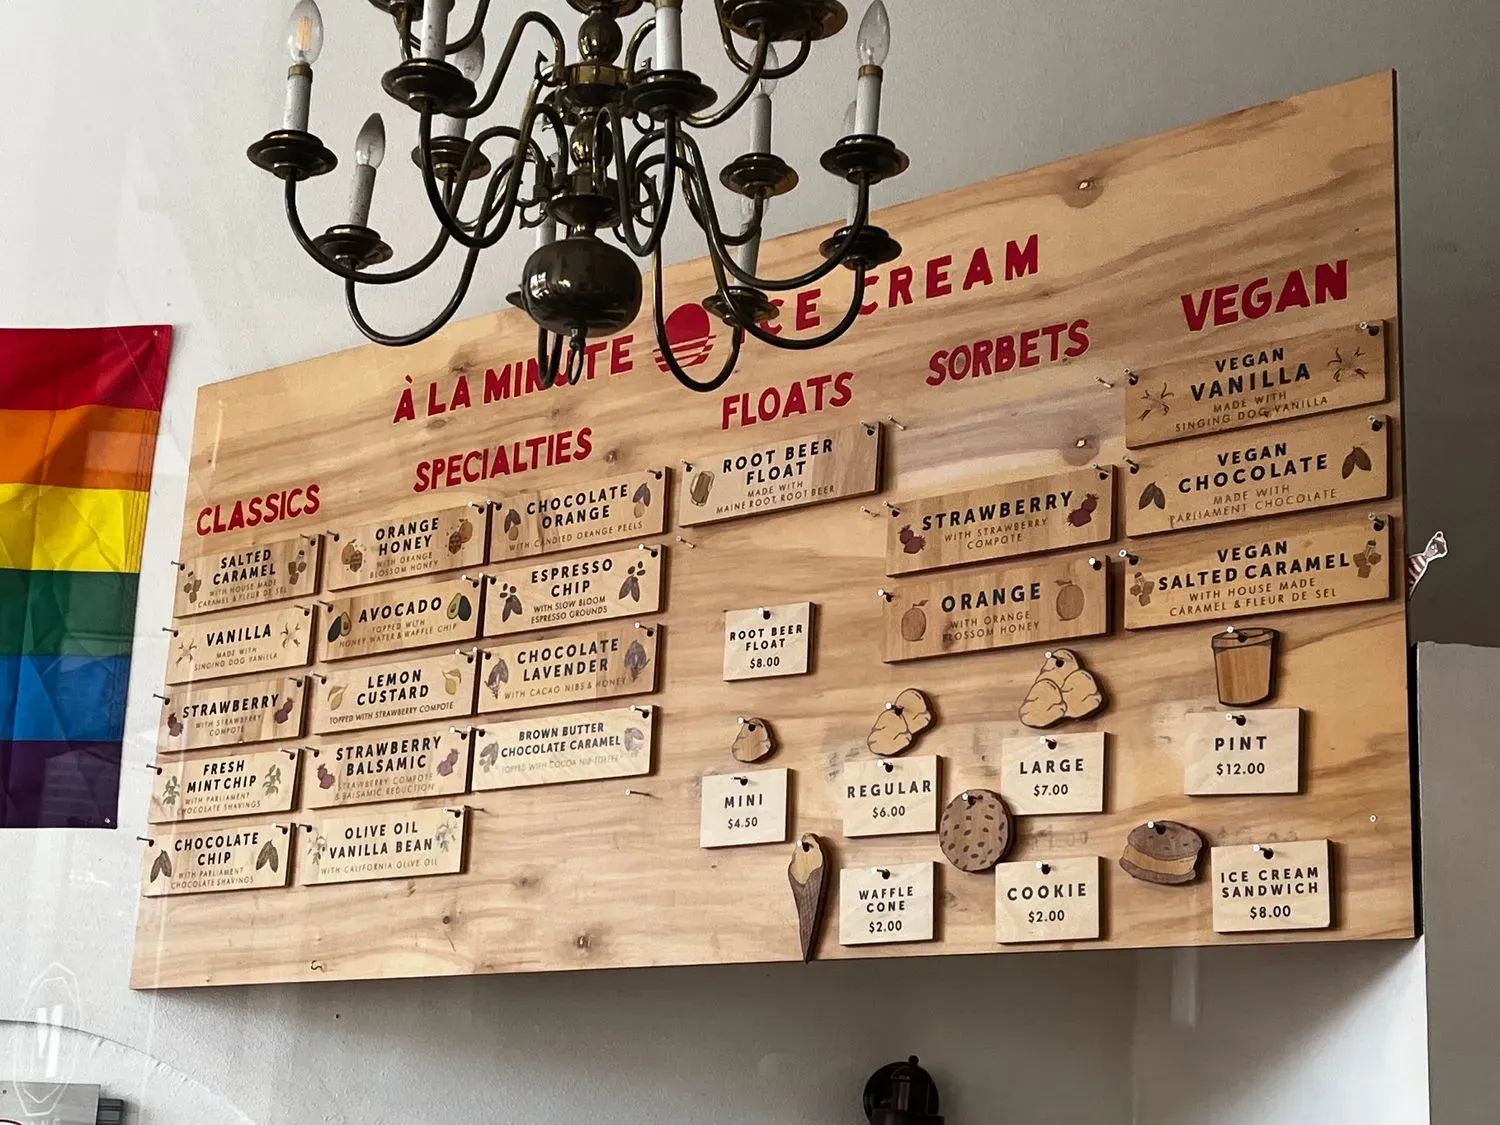 À LA MINUTE ICE CREAM
CLASSICS
SALTED
CARAMEL
WITH HOUSE MADE
CARAMEL & FLEUR DE SEL
VANILLA
MADE WITH
SINGING DOG VANILLA
STRAWBERRY
WITH STRAWBERRY
COMPOTE
FRESH
MINTCHIP
WITH PARLIAMENT
CHOCOLATE SHAVINGS
CHOCOLATE
CHIP
WITH PARLIAMENT
CHOCOLATE SHAVINGS
SPECIALTIES
ORANGE
HONEY
WITH ORANGE
BLOSSOM HONEY
AVOCADO
TOPPED WITH
HONEY WATER & WAFFLE CHIP
LEMON
CUSTARD
TOPPED WITH STRAWBERRY COMPOTE
STRAWBERRY
BALSAMIC
STRAWBERRY COMPOTE
& BALSAMIC REDUCTION
OLIVE OIL
VANILLA BEAN
WITH CALIFORNIA OLIVE OIL
CHOCOLATE
ORANGE
WITH CANDIED ORANGE PEELS
ESPRESSO
CHIP
WITH SLOW BLOOM
ESPRESSO GROUNDS
CHOCOLATE
LAVENDER
WITH CACAO NIBS & HONEY
BROWN BUTTER
CHOCOLATE CARAMEL
TOPPED WITH COCOA NIB TOFFEE
FLOATS
ROOT BEER
FLOAT
MADE WITH
MAINE ROOT ROOT BEER
ROOT BEER
FLOAT
$8.00
SORBETS
STRAWBERRY
WITH STRAWBERRY
COMPOTE
ORANGE
WITH ORANGE
BLOSSOM HONEY
VEGAN
VEGAN
VANILLA
MADE WITH
SINGING DOG VANILLA
VEGAN
CHOCOLATE
MADE WITH
PARLIAMENT CHOCOLATE
VEGAN
SALTED CARAMEL
WITH HOUSE MADE
CARAMEL & FLEUR DE SEL
MINI
$4.50
REGULAR
$6.00
LARGE
$7.00
PINT
$12.00
WAFFLE
CONE
$2.00
COOKIE
$2.00
ICE CREAM
SANDWICH
$8.00